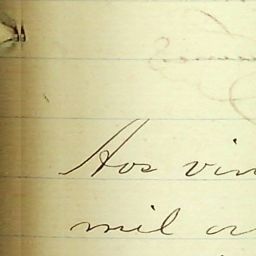 Aos vin
mil oi